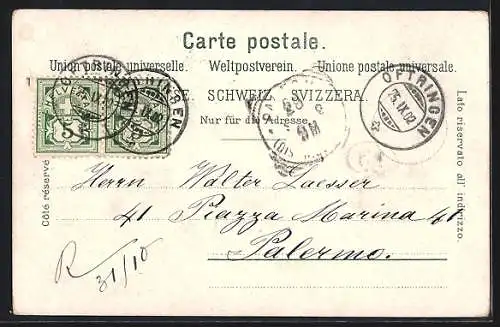 Carte postale.
Union postale universelle. Weltpostverein. Unione postale universale.
SCHWEIZ. SVIZZERA.
Nur für die Adresse.
OFTRINGEN
25.IX.02
HELVETIA
5 5
Côté réservé
Lato riservato all' indirizzo.
Herrn Walter Laesser
41 Piazza Marina 41
Palermo.
R 31/10